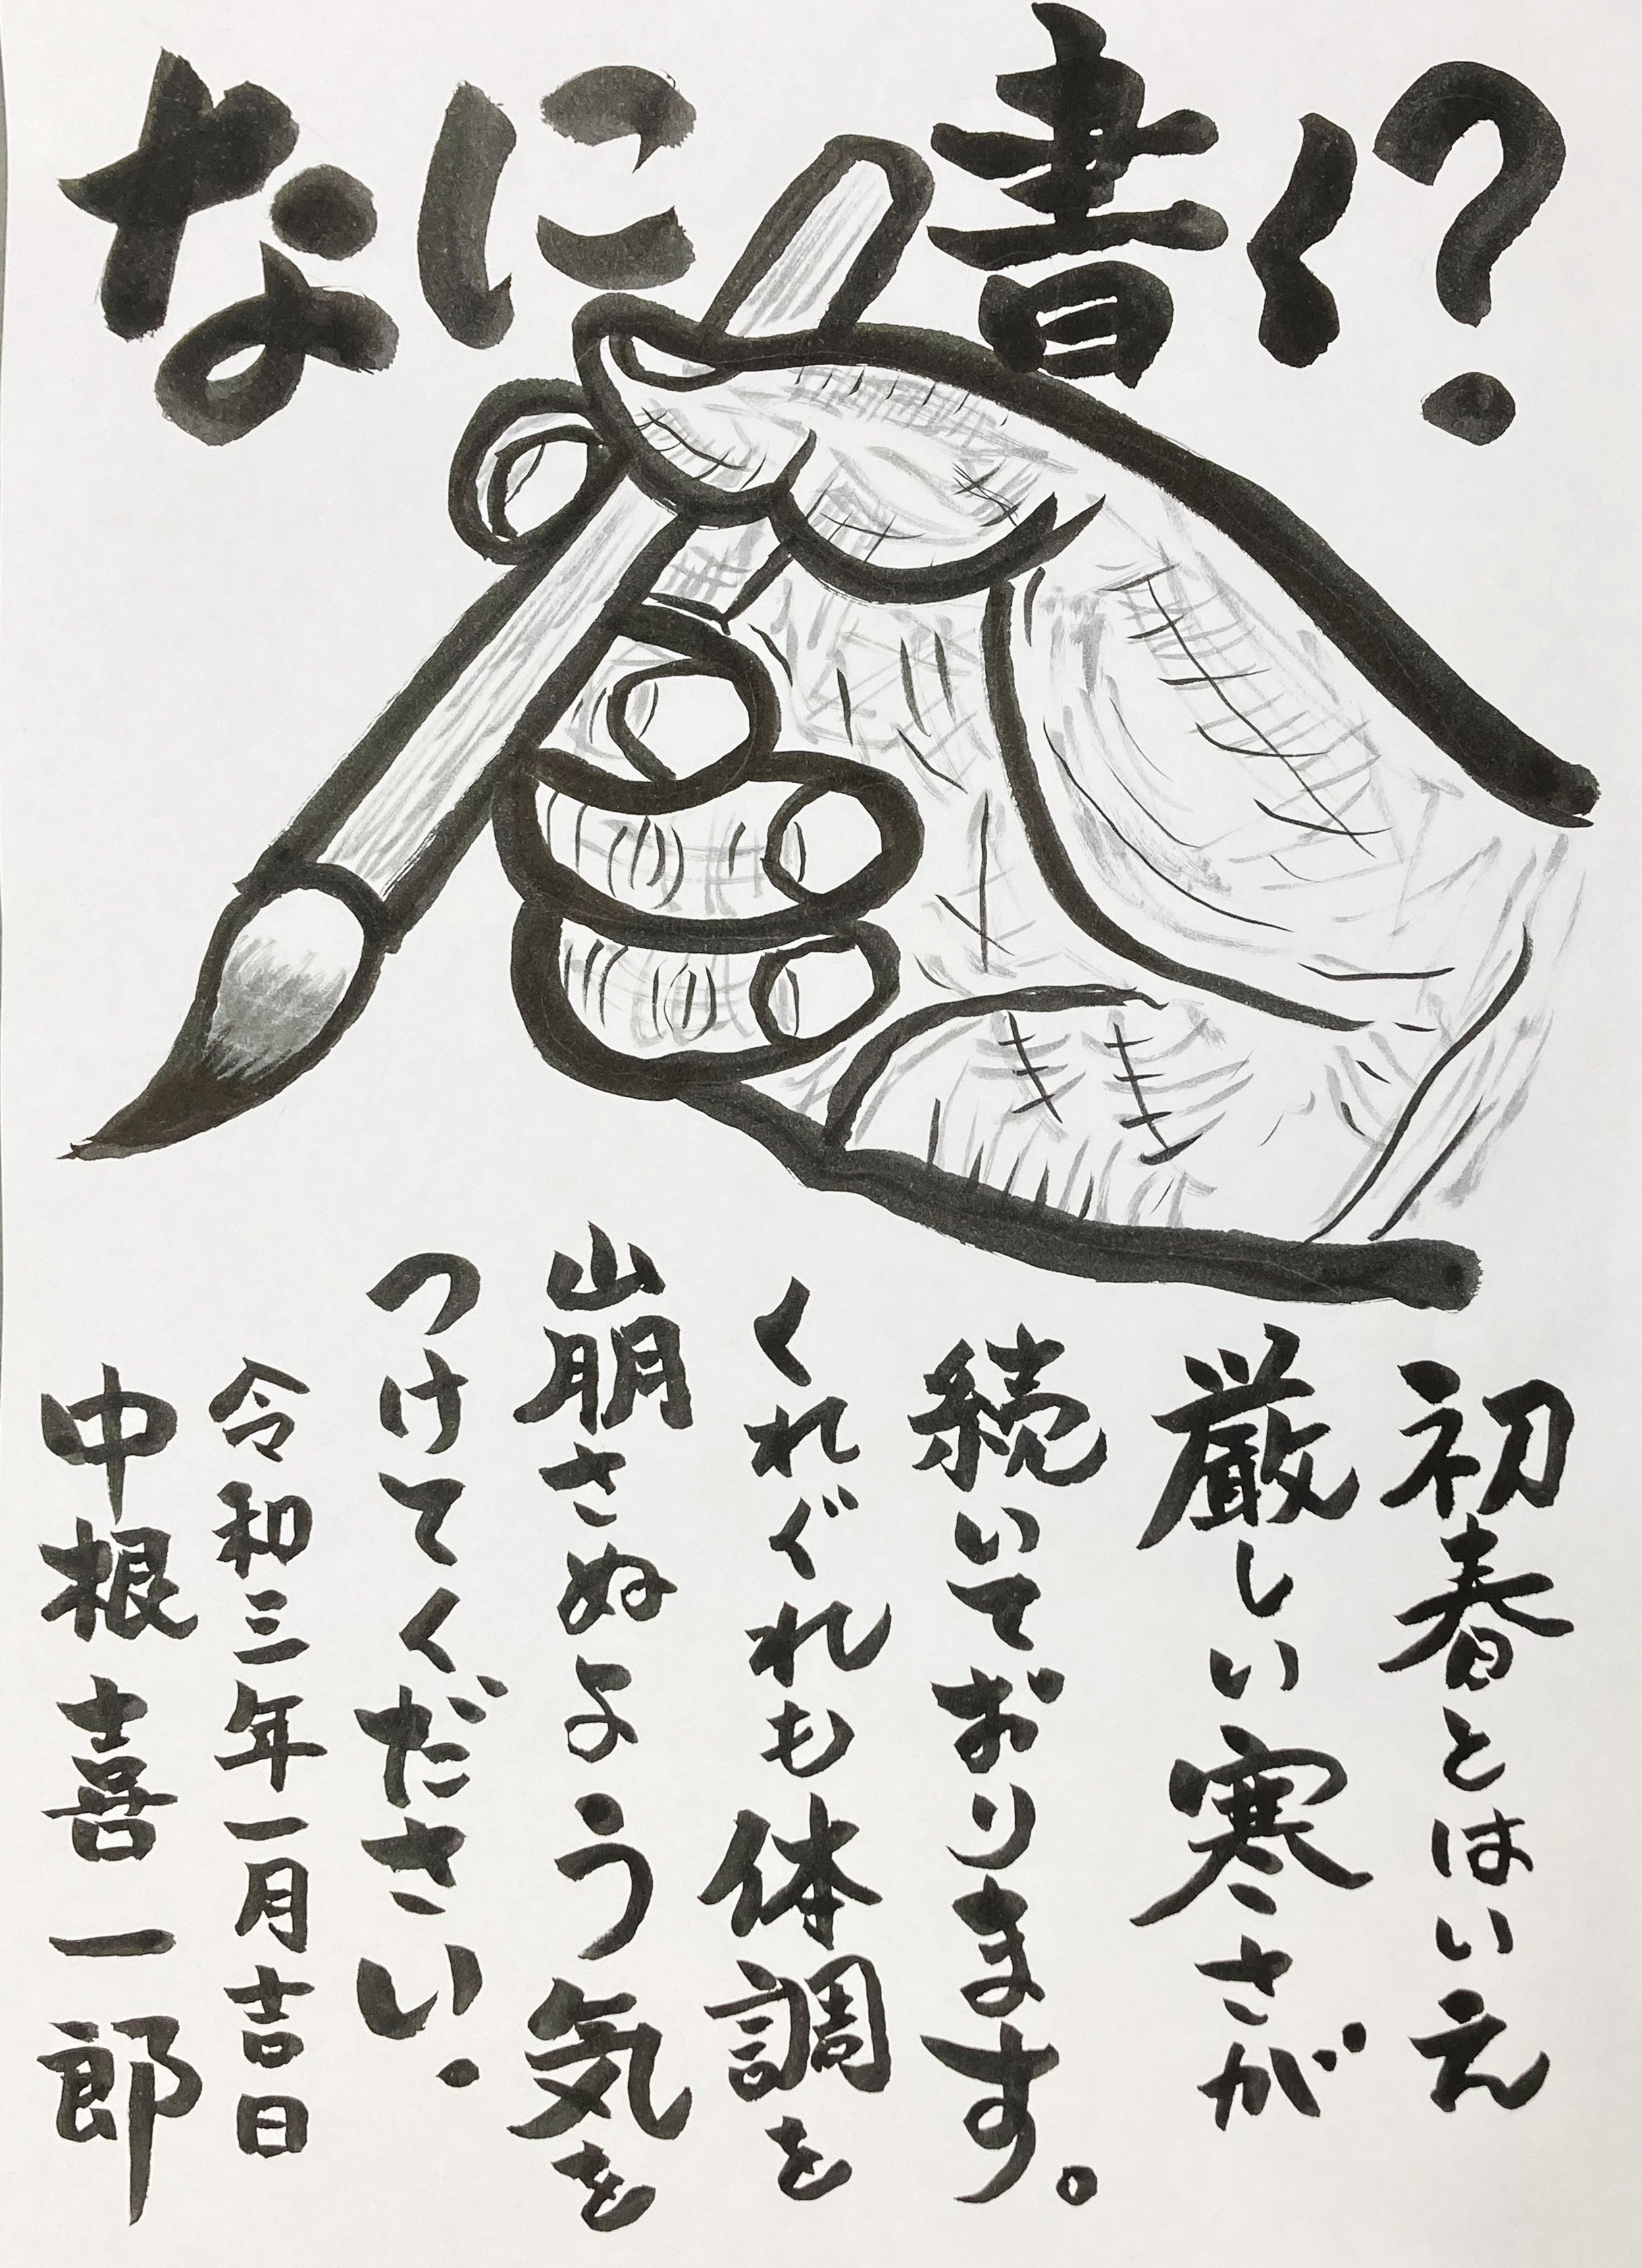 なに書く?
初春とはいえ
厳しい寒さが
続いております。
くれぐれも体調を
崩さぬよう気を
つけてください.
令和三年一月吉日
中根喜一郎